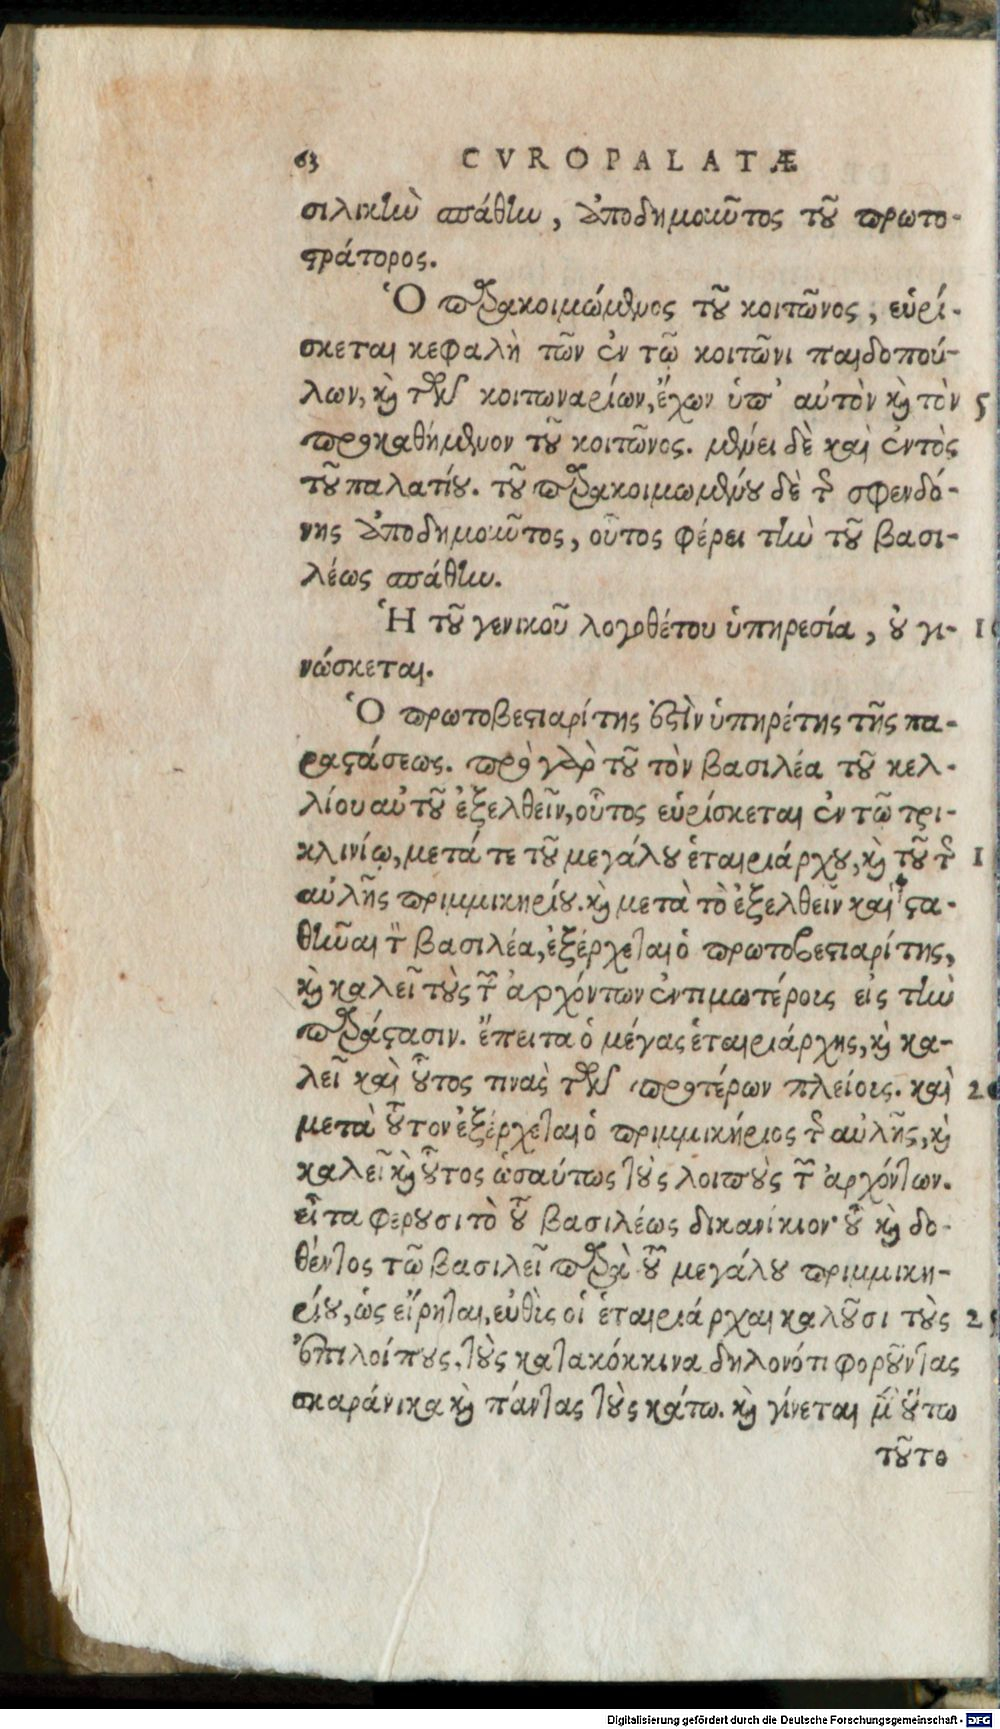 63 CVROPALATÆ
σιλικὴν σπάθην, ἀποδημοῦντος τοῦ πρωτο-
στράτορος.
Ὁ παρακοιμώμενος τοῦ κοιτῶνος, εὑρί-
σκεται κεφαλὴ τῶν ἐν τῷ κοιτῶνι παιδοπού-
λων, καὶ τῶν κοιτωναρίων, ἔχων ὑπ' αὐτὸν καὶ τὸν 5
προκαθήμενον τοῦ κοιτῶνος. μένει δὲ καὶ ἐντὸς
τοῦ παλατίου. τοῦ παρακοιμωμένου δὲ τῆς σφενδό-
νης ἀποδημοῦντος, οὗτος φέρει τὴν τοῦ βασι-
λέως σπάθην.
Ἡ τοῦ γενικοῦ λογοθέτου ὑπηρεσία, οὐ γι- 10
νώσκεται.
Ὁ πρωτοβεστιαρίτης ἐστὶν ὑπηρέτης τῆς πα-
ραστάσεως. πρὸ γὰρ τοῦ τὸν βασιλέα τοῦ κελ-
λίου αὐτοῦ ἐξελθεῖν, οὗτος εὑρίσκεται ἐν τῷ τρι-
κλινίῳ, μετά τε τοῦ μεγάλου ἑταιριάρχου, καὶ τοῦ τῆς 1
αὐλῆς πριμμικηρίου. καὶ μετὰ τὸ ἐξελθεῖν καὶ στα-
θῆναι τὸν βασιλέα, ἐξέρχεται ὁ πρωτοβεστιαρίτης,
καὶ καλεῖ τοὺς τῶν ἀρχόντων ἐντιμωτέρους εἰς τὴν
παράστασιν. ἔπειτα ὁ μέγας ἑταιριάρχης, καὶ κα-
λεῖ καὶ οὗτος τινὰς τῶν προτέρων πλείους. καὶ 20
μετὰ τοῦτον ἐξέρχεται ὁ πριμμικήριος τῆς αὐλῆς, καὶ
καλεῖ καὶ οὗτος ὡσαύτως τοὺς λοιποὺς τῶν ἀρχόντων.
εἶτα φέρουσι τὸ τοῦ βασιλέως δικανίκιον· οὗ καὶ δο-
θέντος τῷ βασιλεῖ παρὰ τοῦ μεγάλου πριμμικη-
ρίου, ὡς εἴρηται, εὐθὺς οἱ ἑταιριάρχαι καλοῦσι τοὺς 25
ἐπιλοίπους, τοὺς κατακόκκινα δηλονότι φοροῦντας
σκαράνικα καὶ πάντας τοὺς κάτω. καὶ γίνεται μὲν οὕτω
τοῦτο
Digitalisierung gefördert durch die Deutsche Forschungsgemeinschaft - DFG